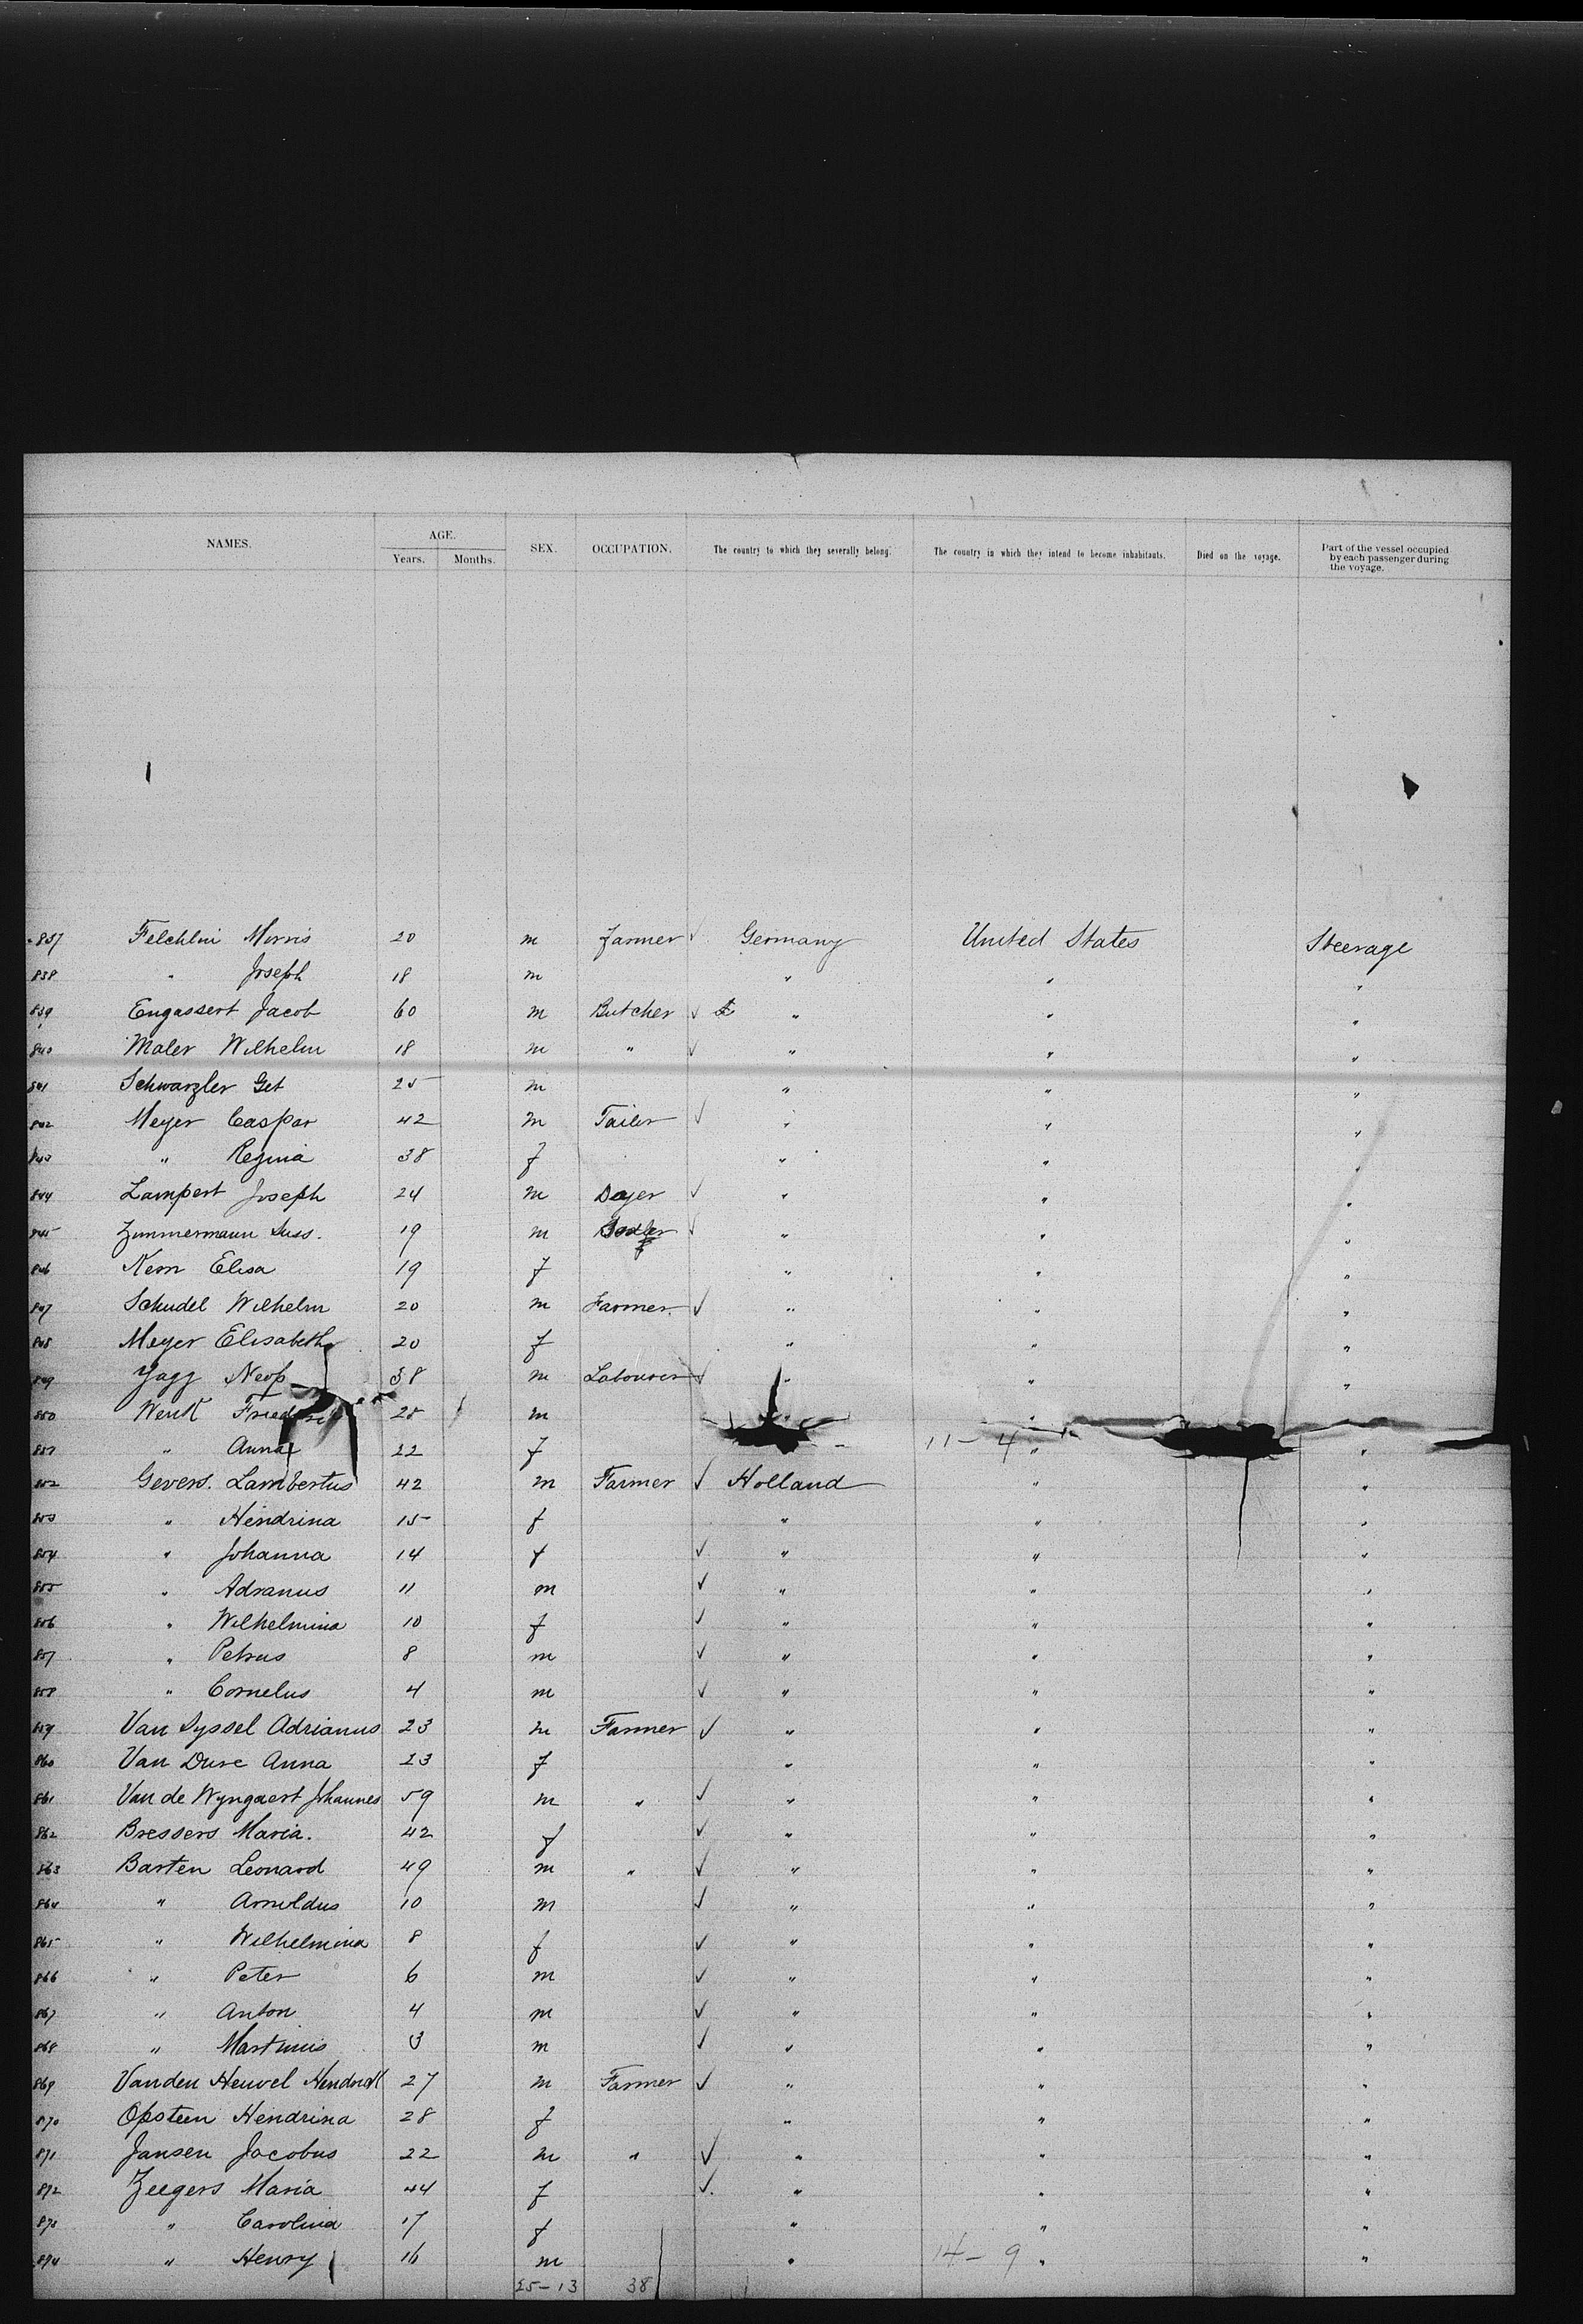 NAMES. AGE. Years. Months. SEX. OCCUPATION. The country to which they severally belong. The country in which they intend to become inhabitants. Died on the voyage. Part of the vessel occupied by each passenger during the voyage.
837 Felchlin Morris 20 m Farmer ✓ Germany United States Steerage
838 " Joseph 18 m " " "
839 Engassert Jacob 60 m Butcher ✓ " " "
840 Maler Wilhelm 18 m " ✓ " " "
841 Schwarzler Get 25 m " " "
842 Meyer Caspar 42 m Tailor ✓ " " "
843 " Regina 38 f " " "
844 Lampert Joseph 24 m Dyer ✓ " " "
845 Zimmermann Suss. 19 m ✓ " " "
846 Kern Elisa 19 f " " "
847 Schudel Wilhelm 20 m Farmer ✓ " " "
848 Meyer Elisabeth 20 f " " "
849 Yagg 38 m Labourer ✓ " " "
850 Wenk 25 m "
851 " Anna 22 f 11-4 " "
852 Gevers. Lambertus 42 m Farmer ✓ Holland " "
853 " Hendrina 15 f " " "
854 " Johanna 14 f ✓ " " "
855 " Adranus 11 m ✓ " " "
856 " Wilhelmina 10 f ✓ " " "
857 " Petrus 8 m ✓ " " "
858 " Cornelus 4 m ✓ " " "
859 Van Dyssel Adrianus 23 m Farmer ✓ " " "
860 Van Dure Anna 23 f " " "
861 Van de Wyngaert Johannes 59 m " ✓ " " "
862 Bressers Maria. 42 f ✓ " " "
863 Barten Leonard 49 m " ✓ " " "
864 " Arnoldus 10 m ✓ " " "
865 " Wilhelmina 8 f ✓ " " "
866 " Peter 6 m ✓ " " "
867 " Anton 4 m ✓ " " "
868 " Martinus 3 m ✓ " " "
869 Vanden Heuvel 27 m Farmer ✓ " " "
870 Opsteen Hendrina 28 f " " "
871 Jansen Jacobus 22 m " ✓ " " "
872 Zeegers Maria 44 f ✓ " " "
873 " Carolina 17 f " " "
874 " Henry 16 m " 14-9 " "
25-13 38